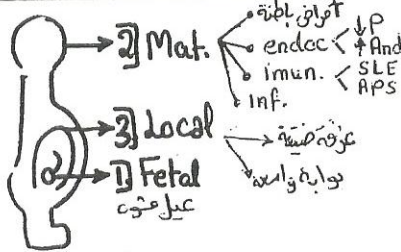 أمراض باطنة
2] Mat.
endoc
↓P
↑And
imun.
SLE
APS
Inf.
3] Local
غرفة ضيقة
بوابة واسعة
1] Fetal
عيل مشوه